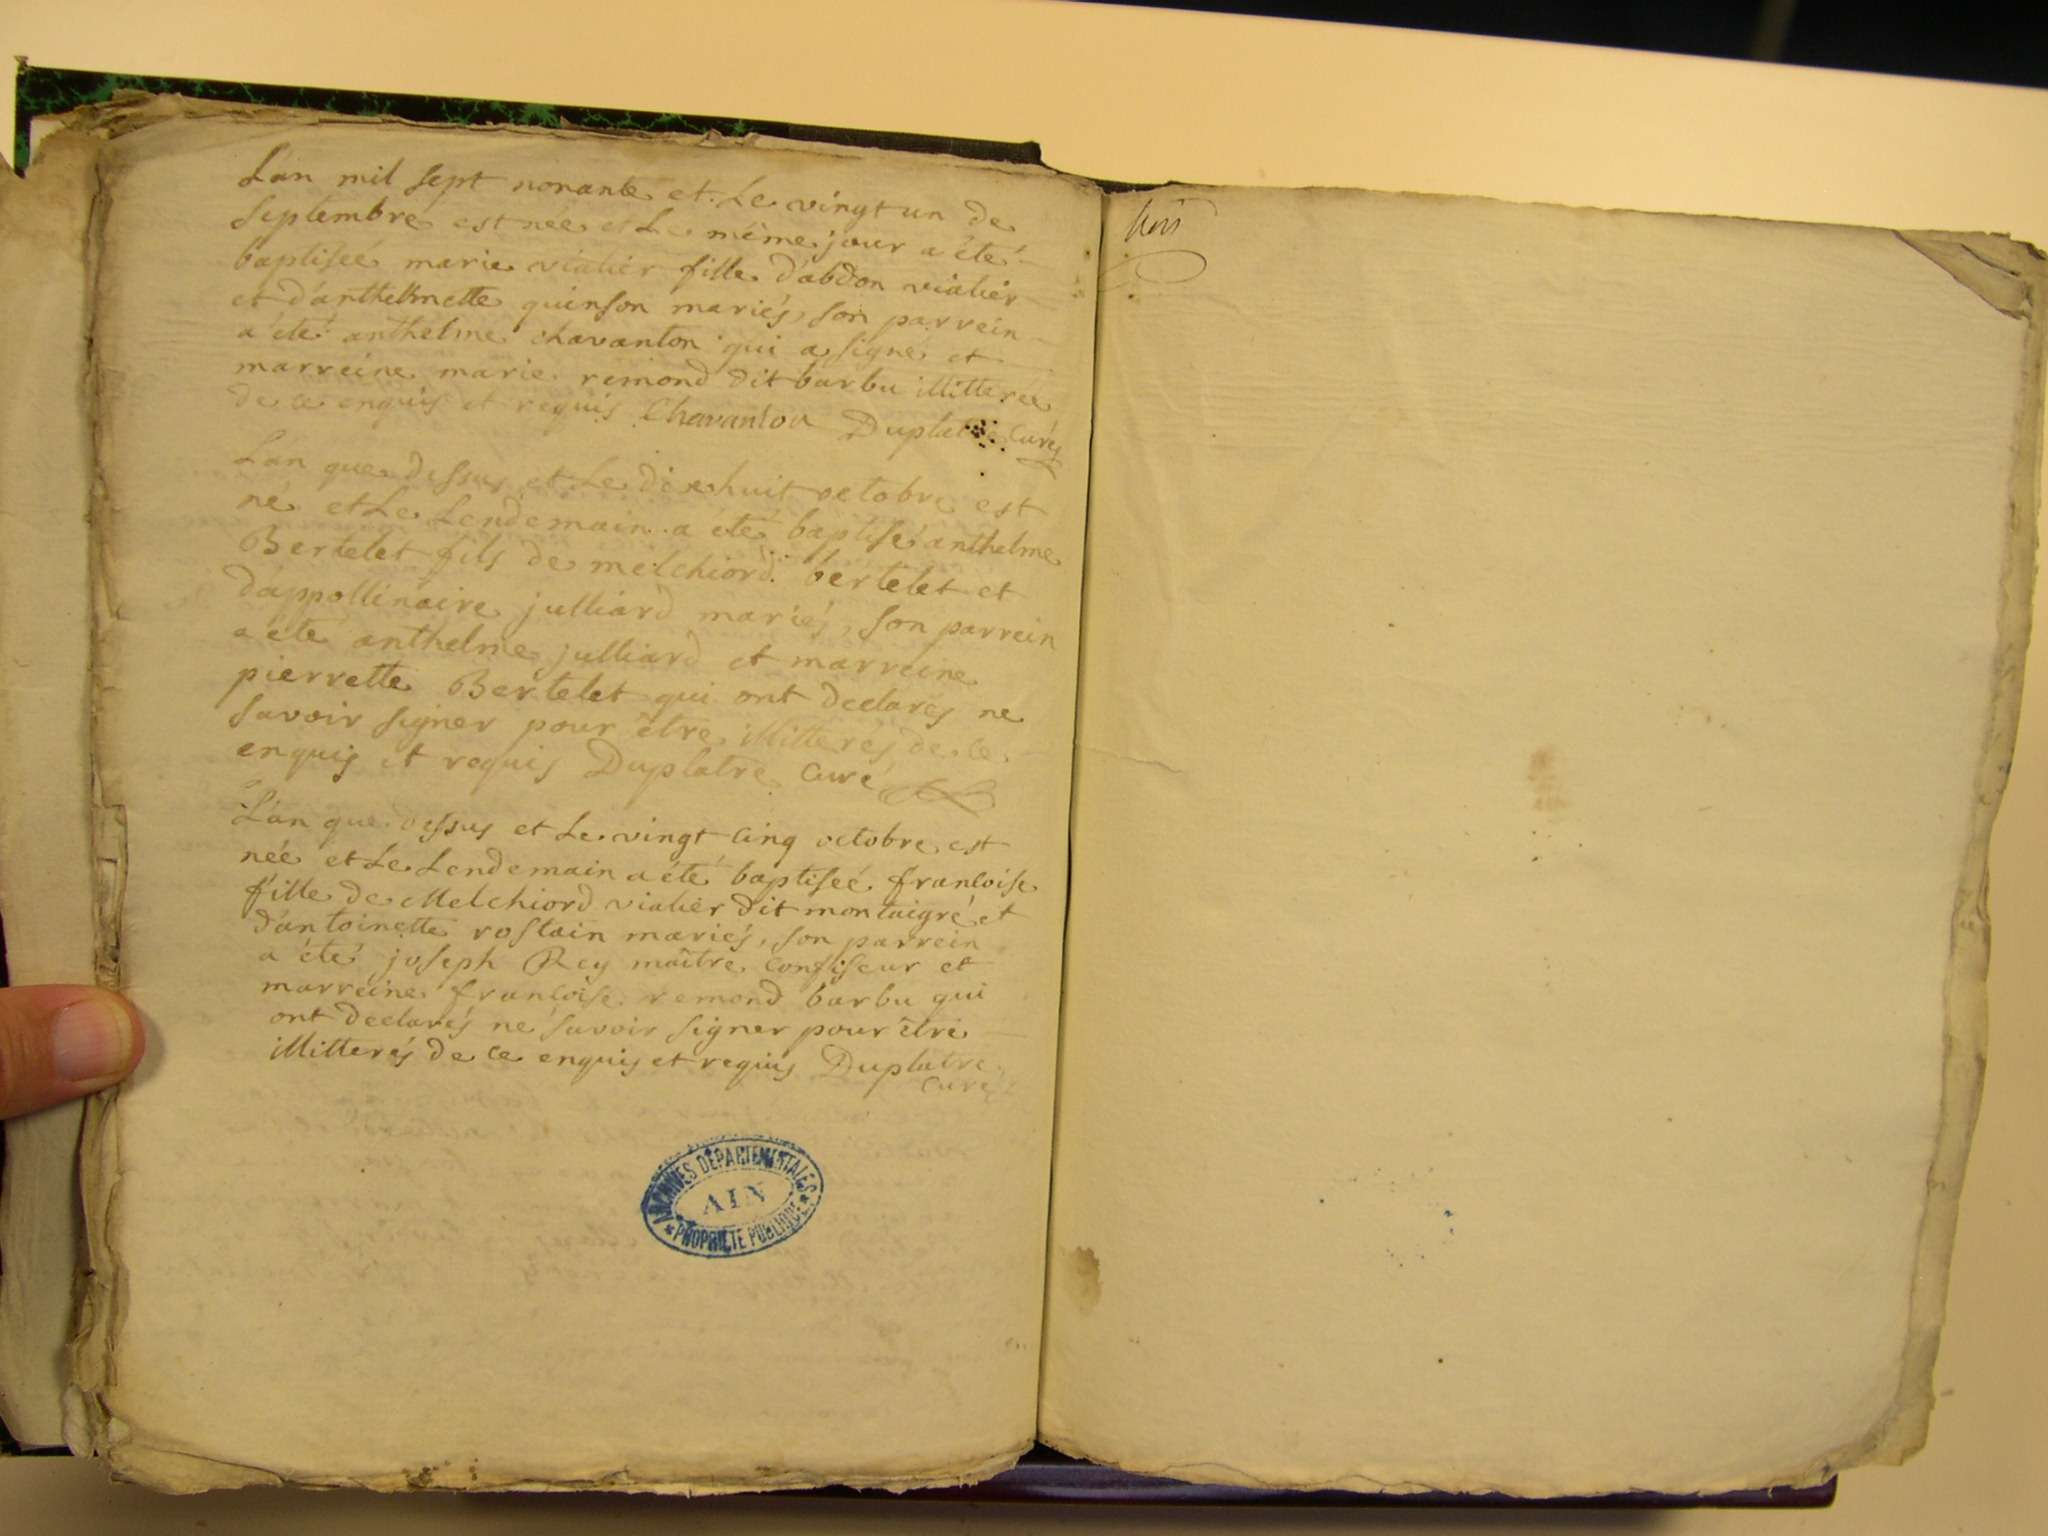 L'an mil sept nonante et le vingt un de
septembre est née et le même jour a été
baptiseé marie vialier fille d'abdon vialier
et d'anthelmette quinson mariés, son parrein
a été anthelme chavanton qui a signé et
marreine marie remond dit barbu illitereé
de ce enquis et requis Chavanton Duplatre Curé
L'an que dessus et le dixhuit octobre est
né et le lendemain a été baptisé anthelme
Bertelet fils de melchiord bertelet et
d'appollinaire julliard mariés, son parrein
a été anthelme julliard et marreine
pierrette Bertelet qui ont declarés ne
savoir signer pour être illitterés de ce
enquis et requis Duplatre Curé
L'an que dessus et le vingt cinq octobre est
née et le lendemain a été baptiseé francoise
fille de Melchiord vialier dit montaigré et
d'antoinette rostain mariés, son parrein
a été joseph Rey maître confiseur et
marreine francoise remond barbu qui
ont declarés ne savoir signer pour être
illitterés de ce enquis et requis Duplatre
Curé
ARCHIVES DÉPARTEMENTALES
AIN
PROPRIÉTÉ PUBLIQUE